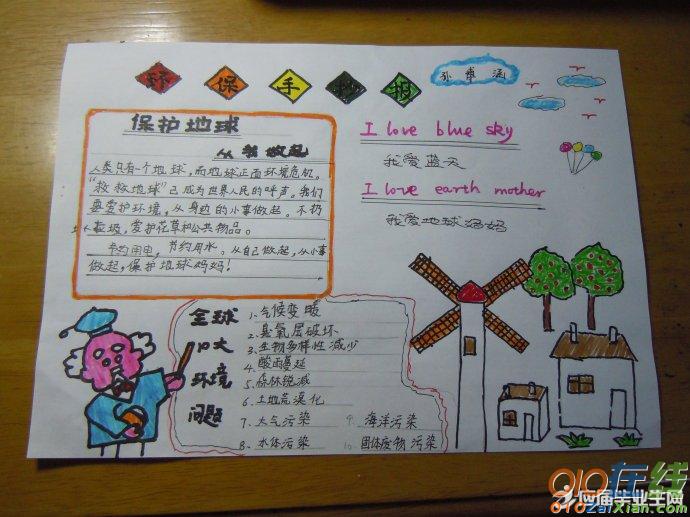 环保手抄报
孙睿涵
保护地球
从我做起
人类只有一个地球,而地球正面环境危机。
"救救地球"已成为世界人民的呼声。我们
要爱护环境,从身边的小事做起。不扔
垃圾,爱护花草和公共物品。
节约用电,节约用水。从自己做起,从小事
做起,保护地球妈妈!
I love blue sky
我爱蓝天
I love earth mother
我爱地球妈妈
全球
十大
环境
问题
1.气候变暖
2.臭氧层破坏
3.生物多样性减少
4.酸雨蔓延
5.森林锐减
6.土地荒漠化
7.大气污染
8.水体污染
9.海洋污染
10.固体废物污染
010在线
应届毕业生网
010zaixian.com